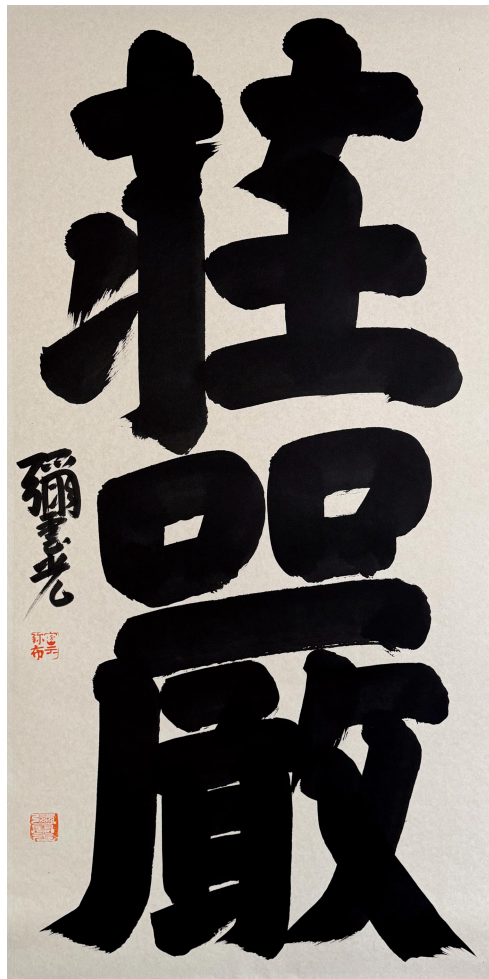 莊嚴
彌雲光